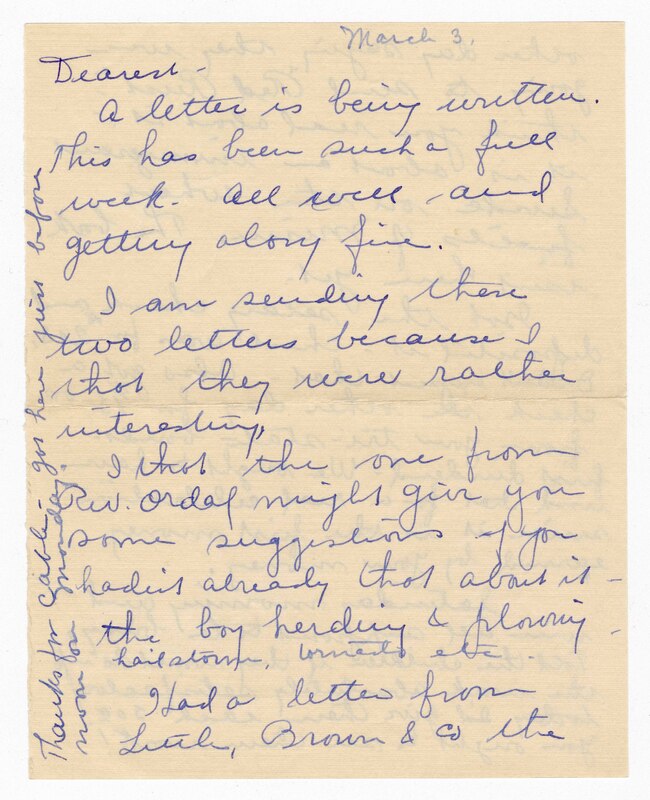 March 3.
Dearest-
A letter is being written.
This has been such a full
week. All well - and
getting along fine.
I am sending these
two letters because I
thot they were rather
interesting,
I thot the one from
Rev. Ordal might give you
some suggestions if you
hadn't already thot about it -
the boy herding & plowing -
hailstorm, tornado etc.
Had a letter from
Little, Brown & Co the
Thanks for Cable - got here just before
noon on Monday.